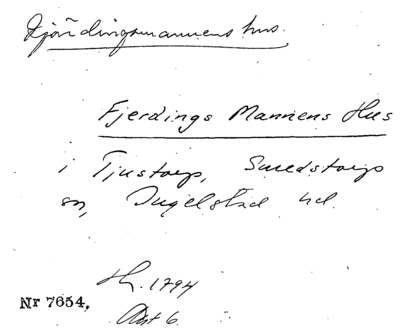 Fjärdingsmannens hus.
Fjerdings Mannens Hus
i Tjustorp, Smedstorps
sn, Ingelstad hd.
Lh. 1794
Akt 6.
Nr 7654.